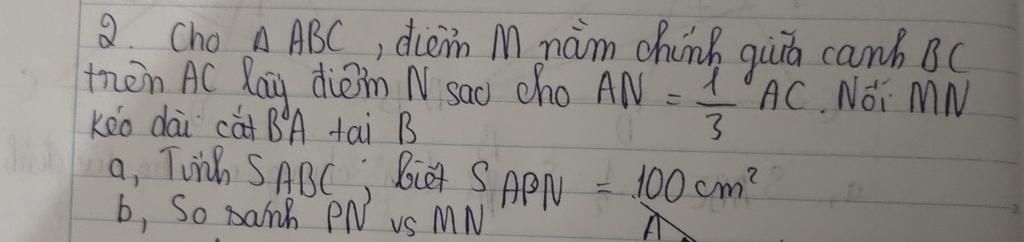 2. Cho Δ ABC, điểm M nằm chính giữa cạnh BC
trên AC lấy điểm N sao cho AN = 1/3 AC. Nối MN
kéo dài cắt BA tại B
a, Tính SABC; biết SAPN = 100 cm²
b, So sánh PN vs MN
A